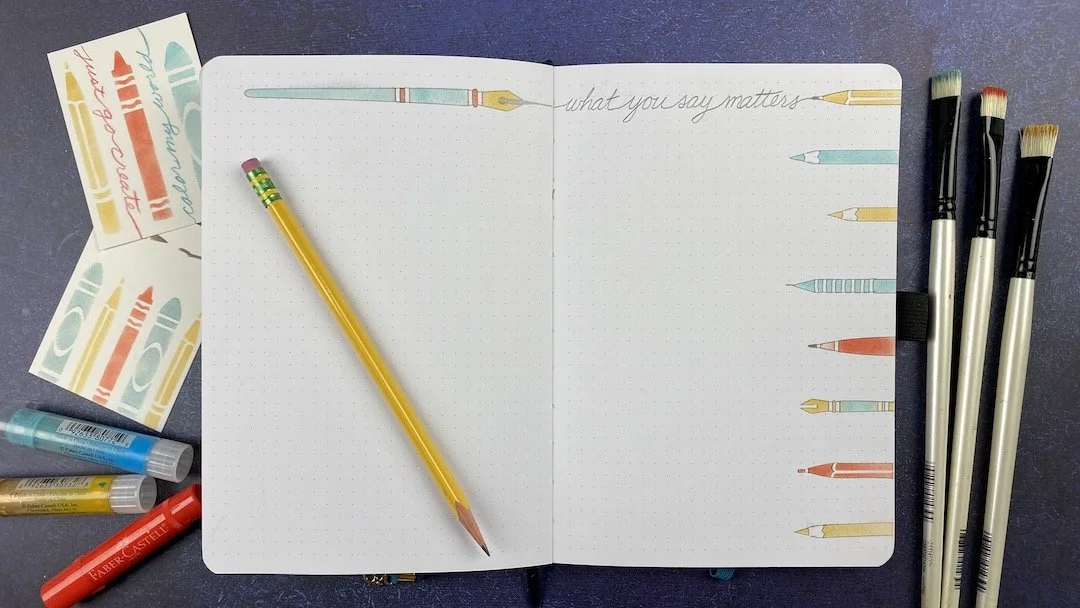 what you say matters
just go create
color my world
FABER-CASTELL